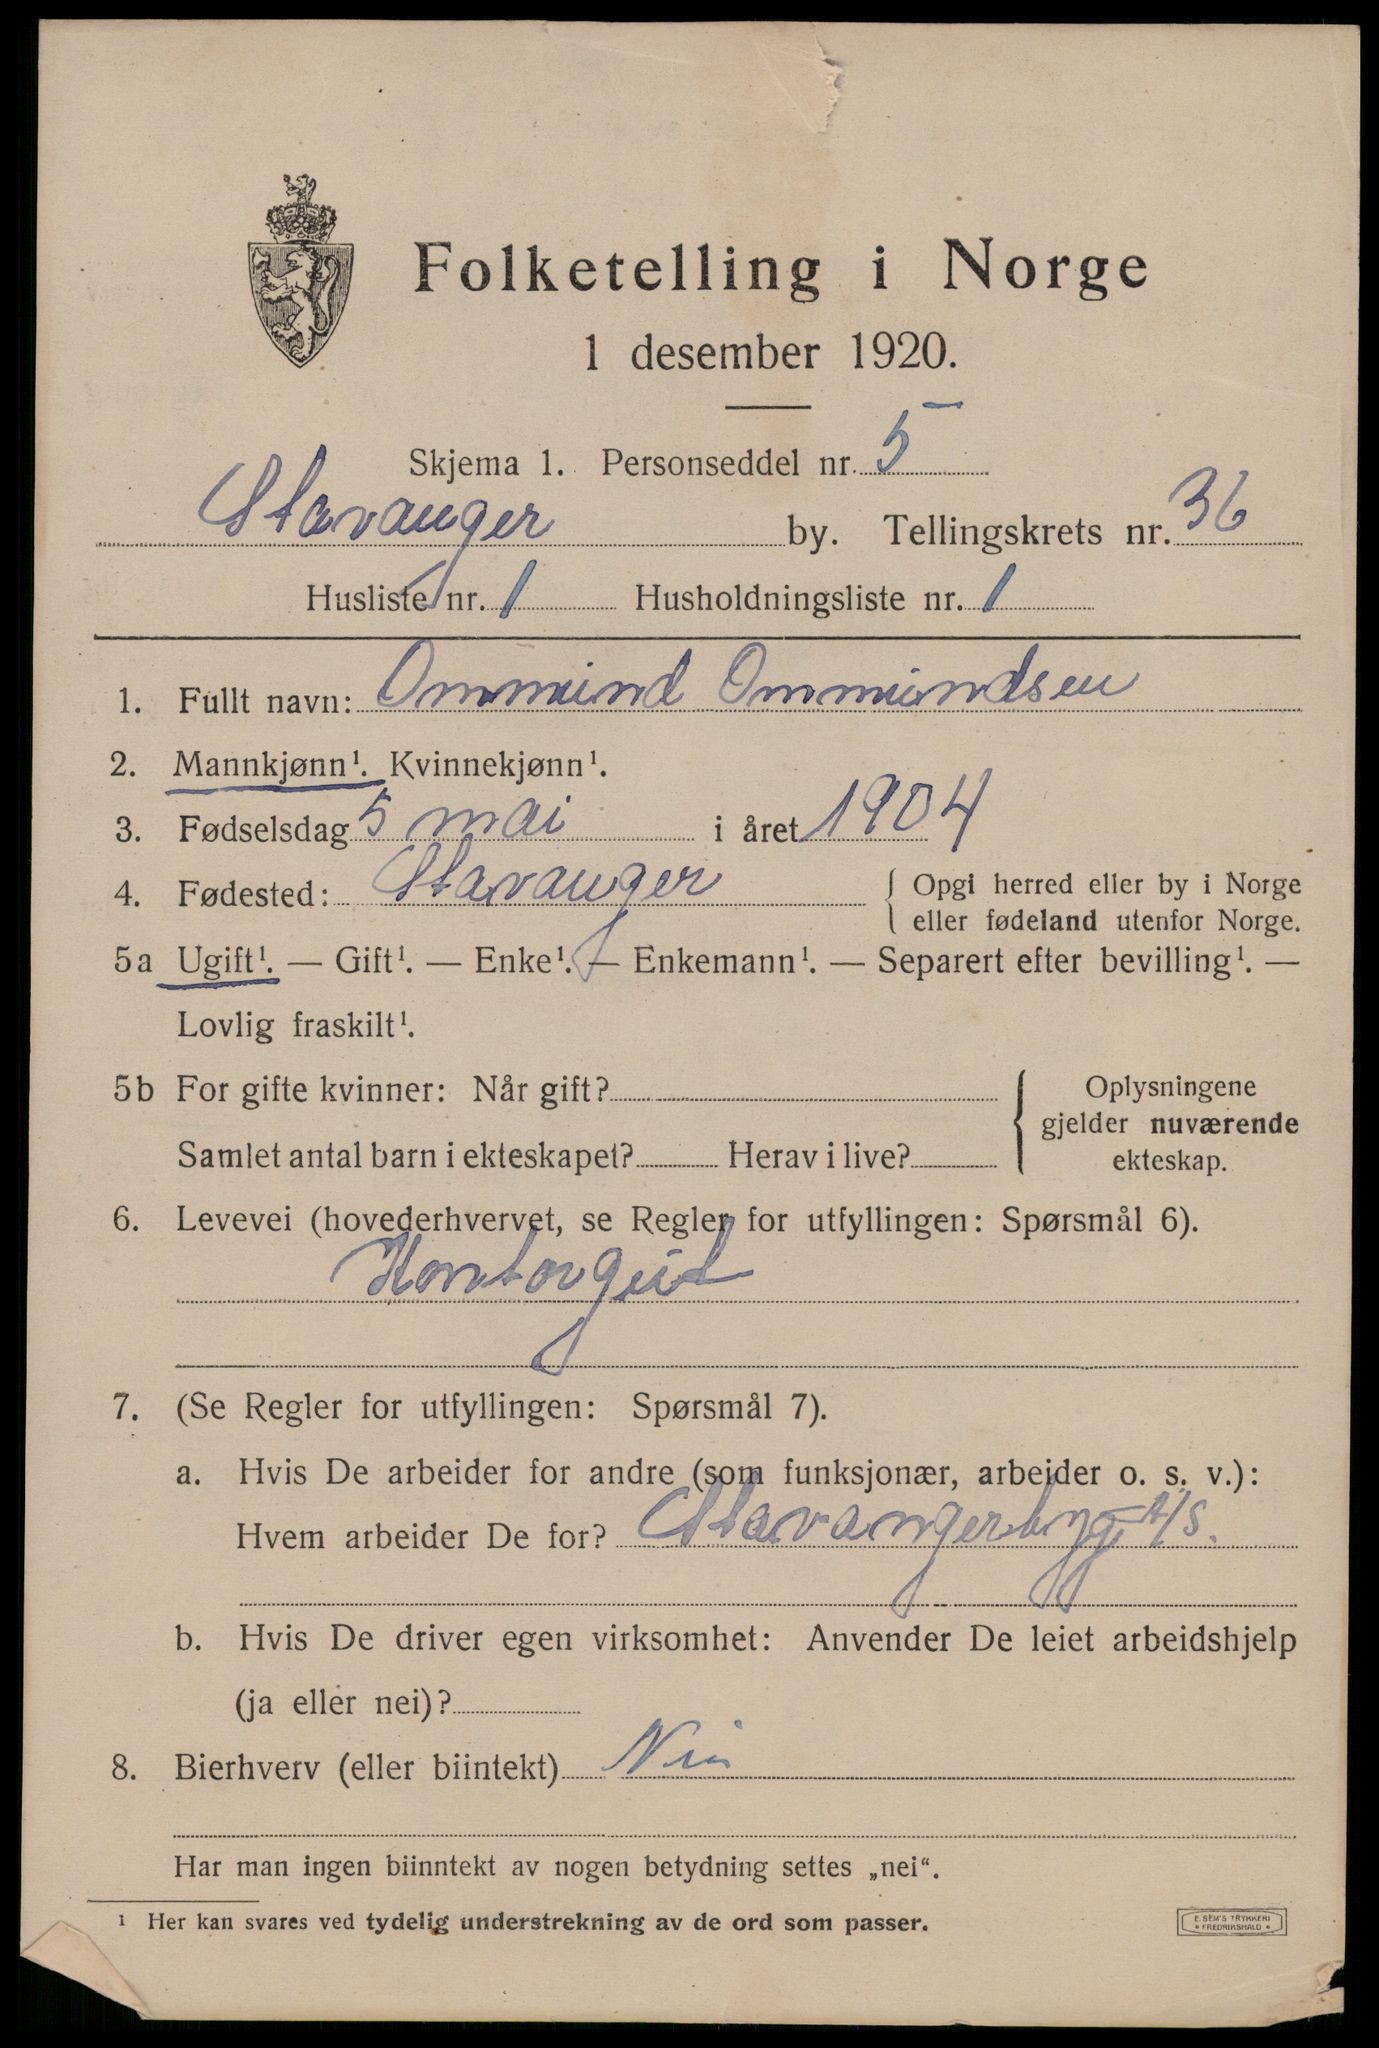 Folketelling i Norge
1 desember 1920.
Skjema 1. Personseddel nr. 5
Stavanger by. Tellingskrets nr. 36
Husliste nr. 1 Husholdningsliste nr. 1
1. Fullt navn: Ommund Ommundsen
2. Mannkjønn¹. Kvinnekjønn¹.
3. Fødselsdag 5 mai i året 1904
4. Fødested: Stavanger { Opgi herred eller by i Norge
eller fødeland utenfor Norge.
5a Ugift¹. — Gift¹. — Enke¹. — Enkemann¹. — Separert efter bevilling¹. —
Lovlig fraskilt¹.
5b For gifte kvinner: Når gift?
Samlet antal barn i ekteskapet? Herav i live?
{ Oplysningene
gjelder nuværende
ekteskap.
6. Levevei (hovederhvervet, se Regler for utfyllingen: Spørsmål 6).
Kontorgut
7. (Se Regler for utfyllingen: Spørsmål 7).
a. Hvis De arbeider for andre (som funksjonær, arbeider o. s. v.):
Hvem arbeider De for? Stavangerbyg A/S.
b. Hvis De driver egen virksomhet: Anvender De leiet arbeidshjelp
(ja eller nei)?
8. Bierhverv (eller biintekt) Nei
Har man ingen biinntekt av nogen betydning settes „nei“.
¹ Her kan svares ved tydelig understrekning av de ord som passer.
E. SEM'S TRYKKERI
* FREDRIKSHALD *